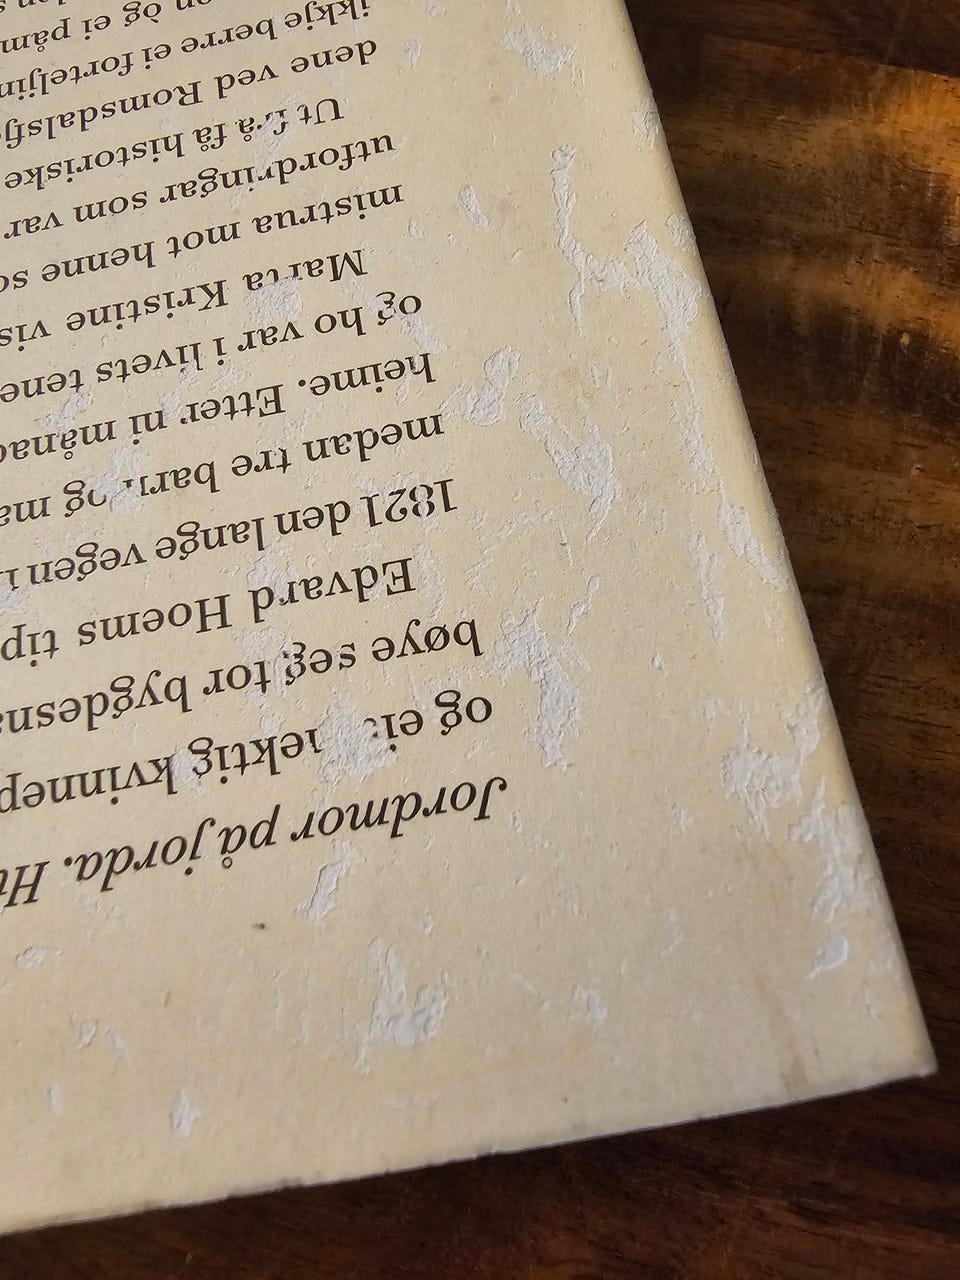 Jordmor på jorda. Hu
og ei mektig kvinnep
bøye seg for bygdesna
Edvard Hoems tip
1821 den lange vegen
medan tre barn og ma
heime. Etter ni månad
og ho var i livets tene
Marta Kristine vis
mistrua mot henne so
utfordringar som var
Ut frå få historiske
dene ved Romsdalsfj
ikkje berre ei forteljin
òg ei påm